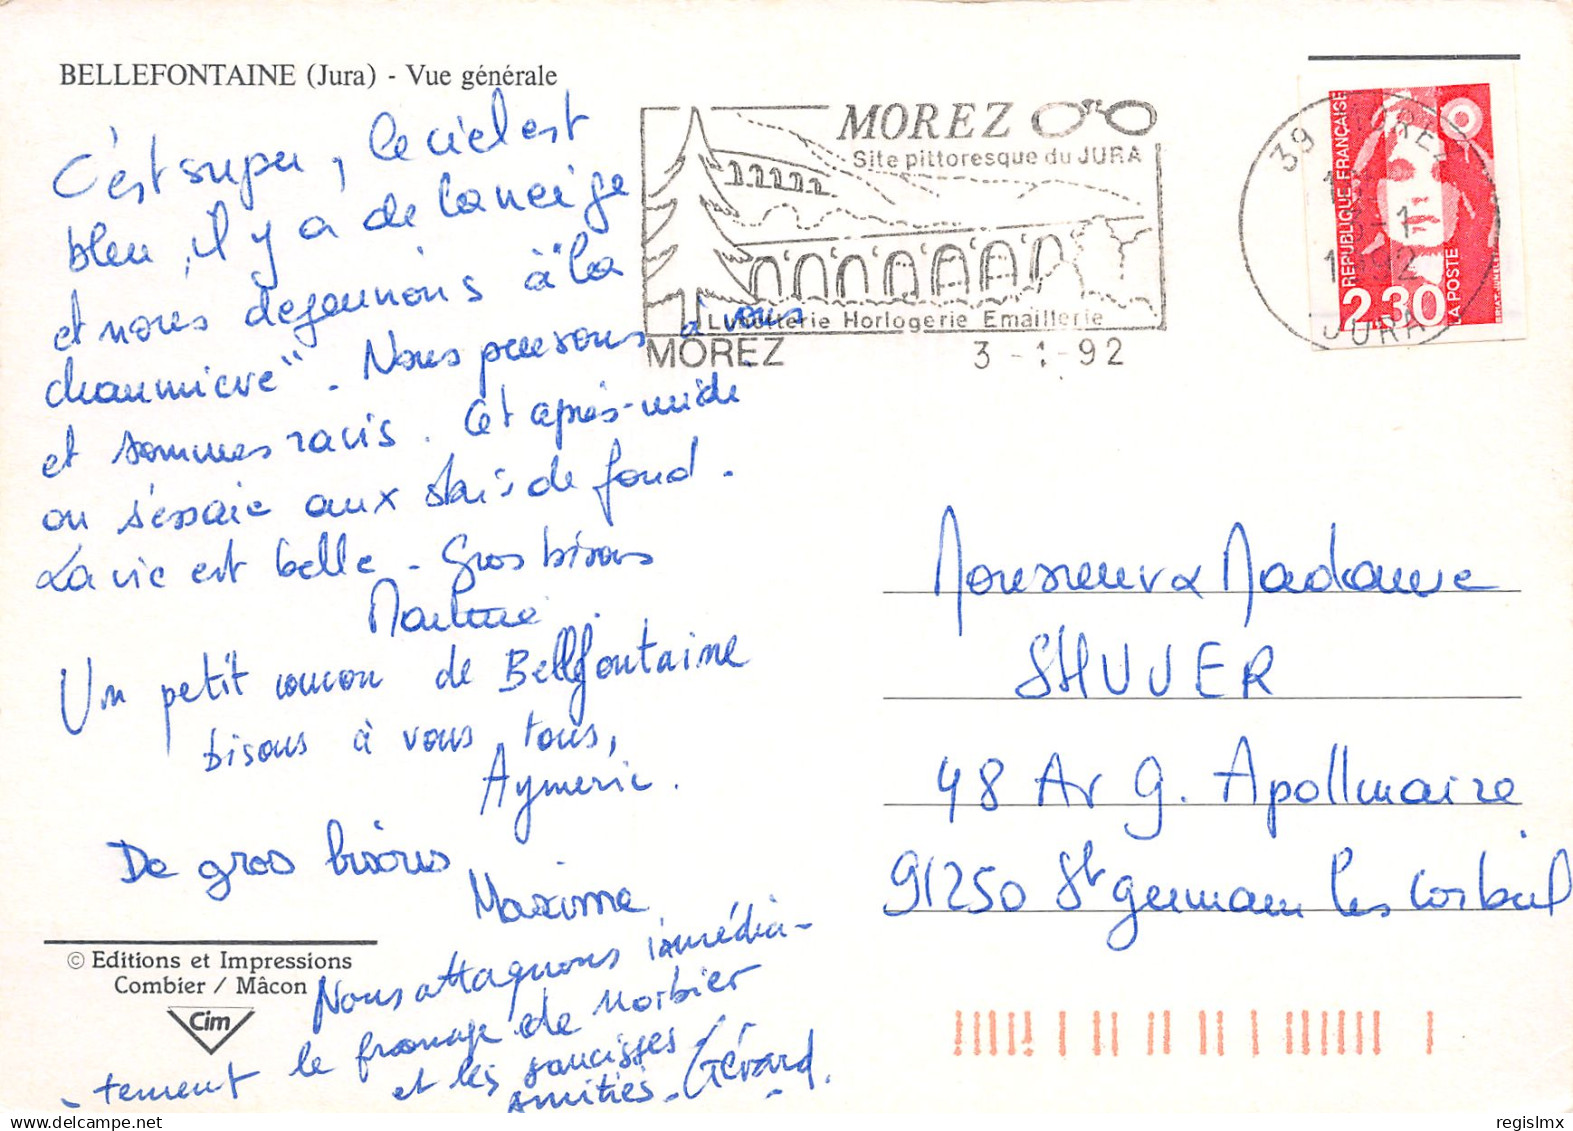 BELLEFONTAINE (Jura) - Vue générale
C'est super, le ciel est
bleu, il y a de la neige
et nous dejeunons à "la
chaumière". Nous pensons à vous
et sommes ravis. Cet après-midi
on s'essaie aux skis de fond.
La vie est belle - Gros bisous
Martine
Un petit coucou de Bellefontaine
bisous à vous tous,
Aymeric.
De gros bisous
Maxime
Nous attaquons immédia-
-tement le fromage de Morbier
et les saucisses
Amitiés - Gérard.
© Editions et Impressions
Combier / Mâcon
Cim
MOREZ
Site pittoresque du JURA
Lunetterie Horlogerie Emaillerie
MOREZ 3 - 1 - 92
39 MOREZ
3-1
1992
JURA
REPUBLIQUE FRANÇAISE
2,30
LA POSTE
Monsieur & Madame
SHUVER
48 Av G. Apollinaire
91250 St Germain les Corbeil
regislmx